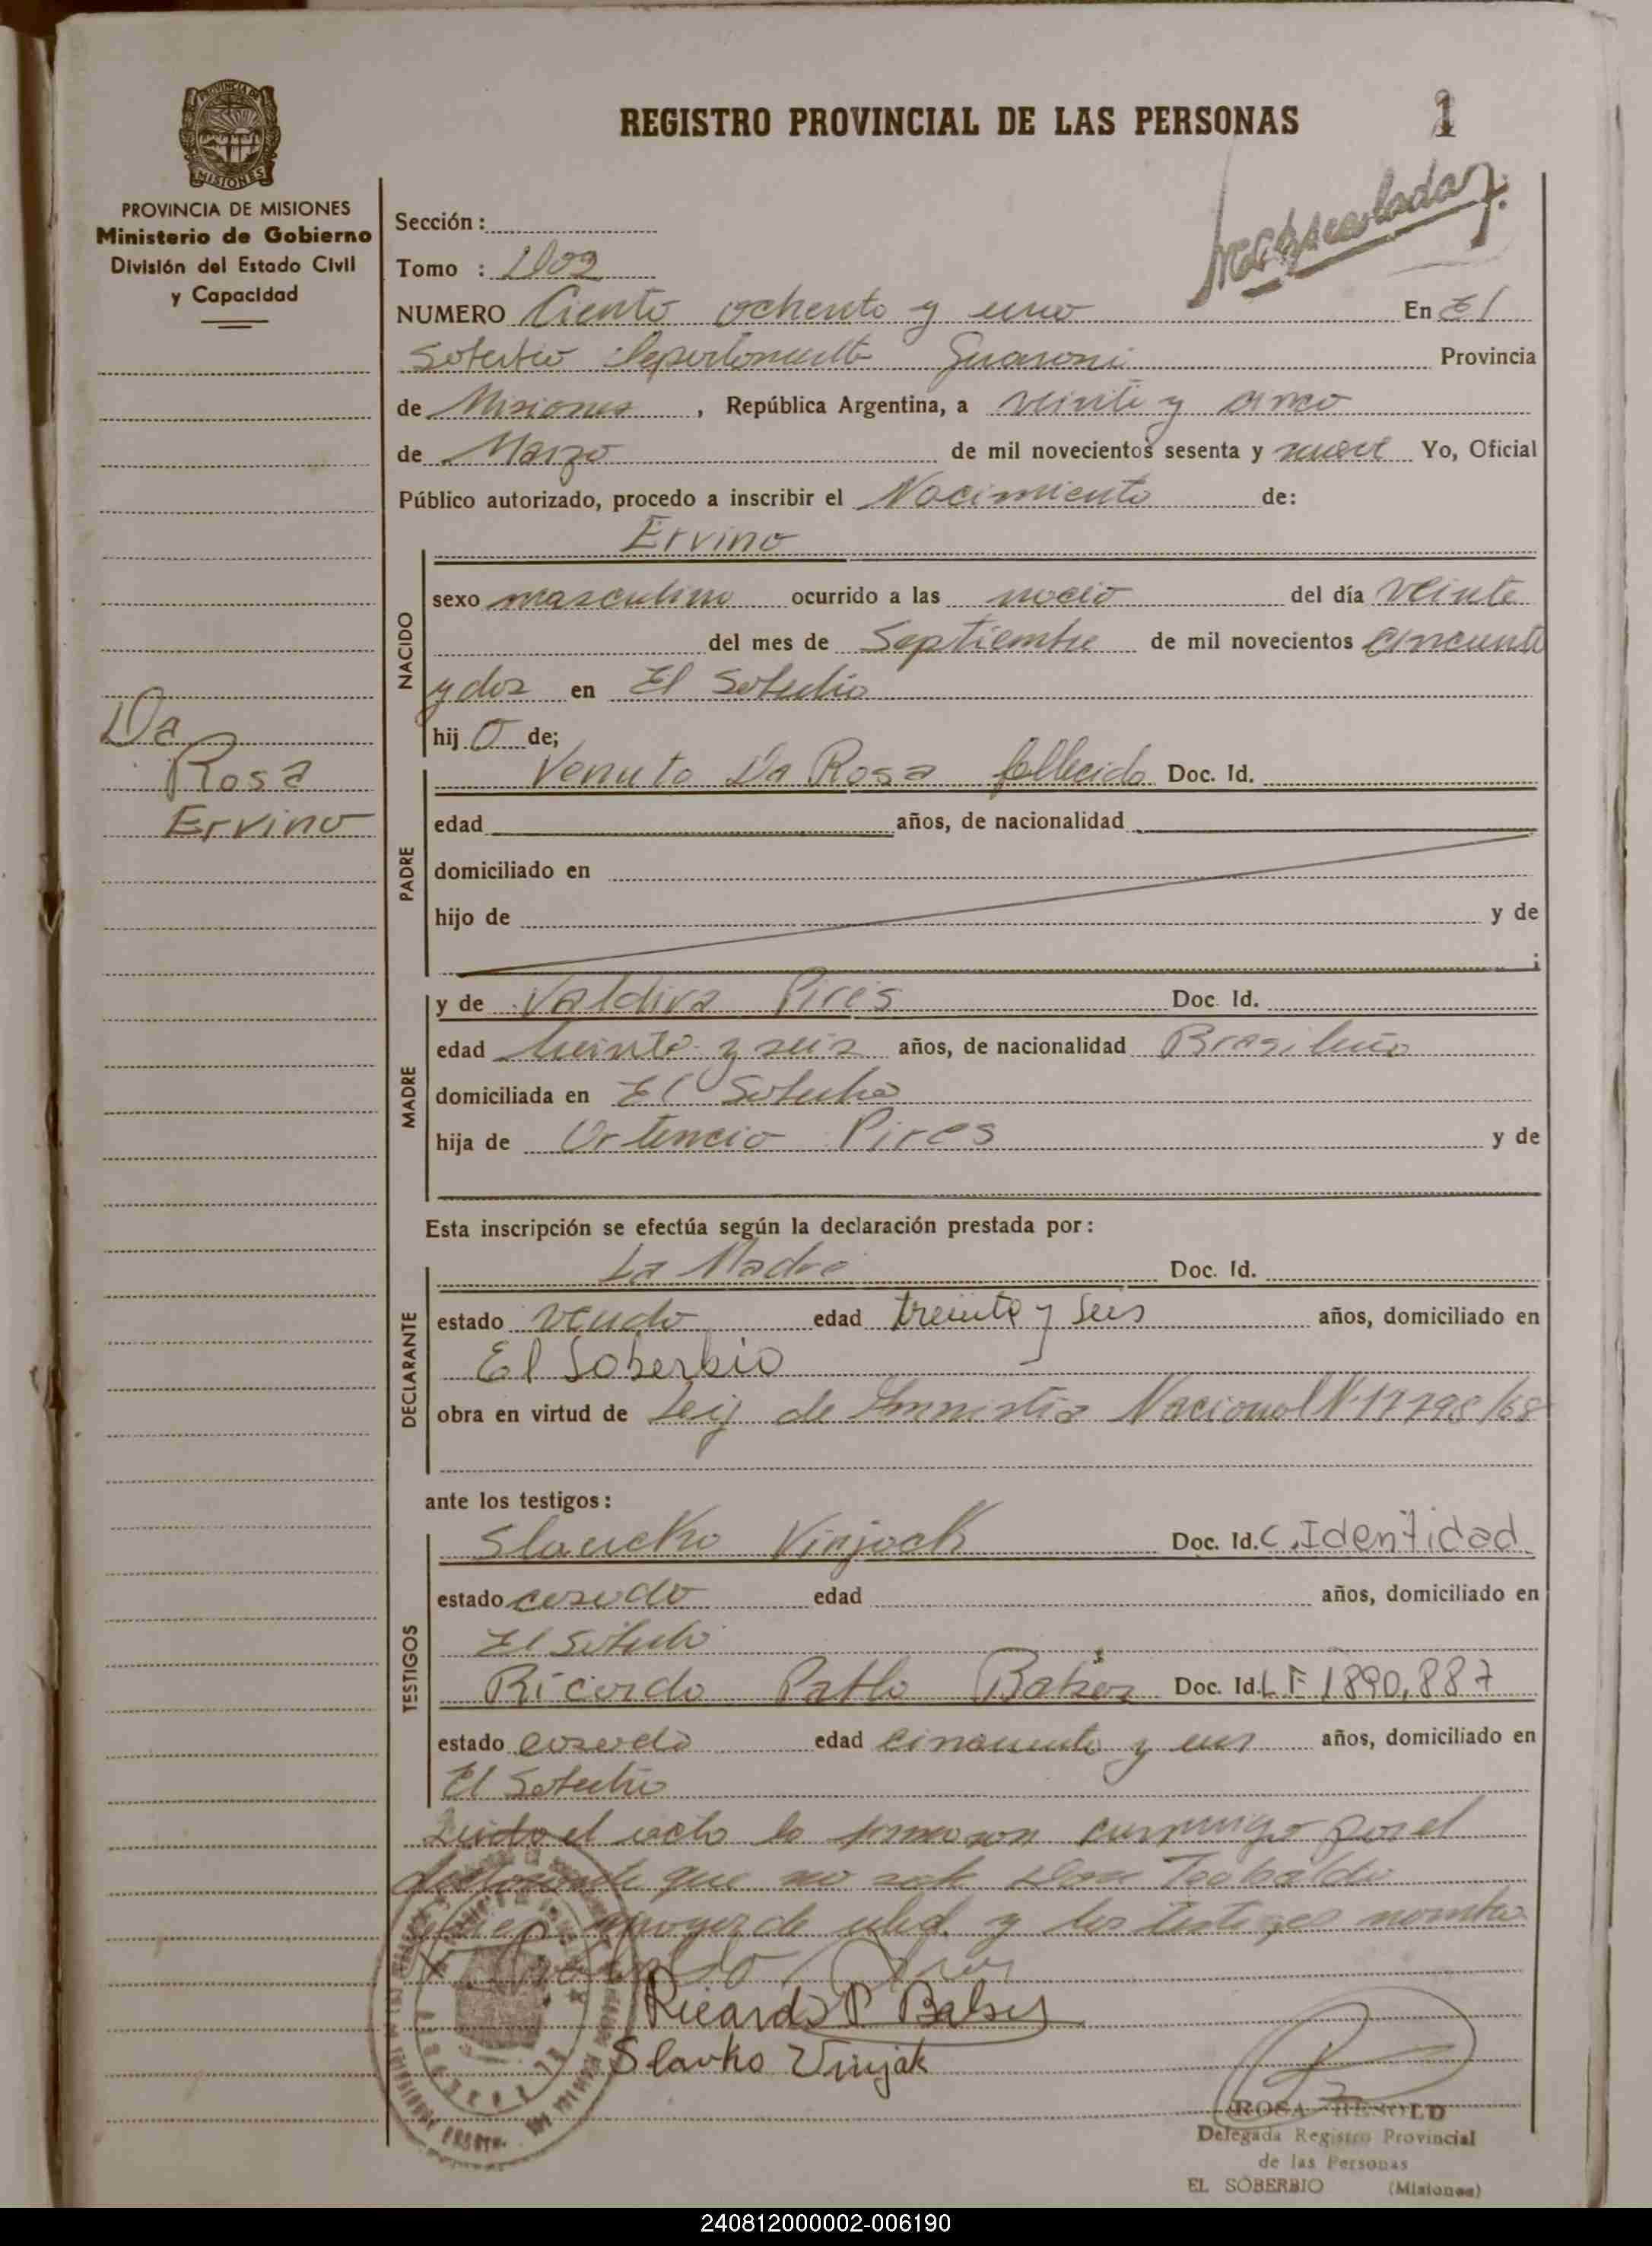 REGISTRO PROVINCIAL DE LAS PERSONAS
1
PROVINCIA DE MISIONES
Ministerio de Gobierno
División del Estado Civil
y Capacidad
Sección :
Tomo :
NUMERO Ciento ochento y uno En El
Guaroni Provincia
de Misiones , República Argentina, a veinte y cinco
de Marzo de mil novecientos sesenta y nueve Yo, Oficial
Público autorizado, procedo a inscribir el Nacimiento de:
Ervino
NACIDO
sexo masculino ocurrido a las del día veinte
del mes de Septiembre de mil novecientos cincuenta
y dos en El Soberbio
hij o de;
Da
Rosa
Ervino
PADRE
Venuto Da Rosa fallecido Doc. Id.
edad años, de nacionalidad
domiciliado en
hijo de y de
MADRE
y de Valdiva Pires Doc. Id.
edad treinta y seis años, de nacionalidad
domiciliada en El Soberbio
hija de Ortencio Pires y de
Esta inscripción se efectúa según la declaración prestada por :
DECLARANTE
La Madre Doc. Id.
estado edad treinta y seis años, domiciliado en
El Soberbio
obra en virtud de Ley de Amnistia Nacional N 17798/68
ante los testigos :
TESTIGOS
Vinjack Doc. Id. C.Identidad
estado casado edad años, domiciliado en
El Soberbio
Ricardo Pablo Doc. Id. LE 1890,887
estado casado edad cincuenta y un años, domiciliado en
El Soberbio
el acta la conmigo por el
que no sabe Don Teobaldo
y los testigos
Ricardo P Balses
Slavko Vinjak
ROSA
Delegada Registro Provincial
de las Personas
EL SOBERBIO (Misiones)
240812000002-006190